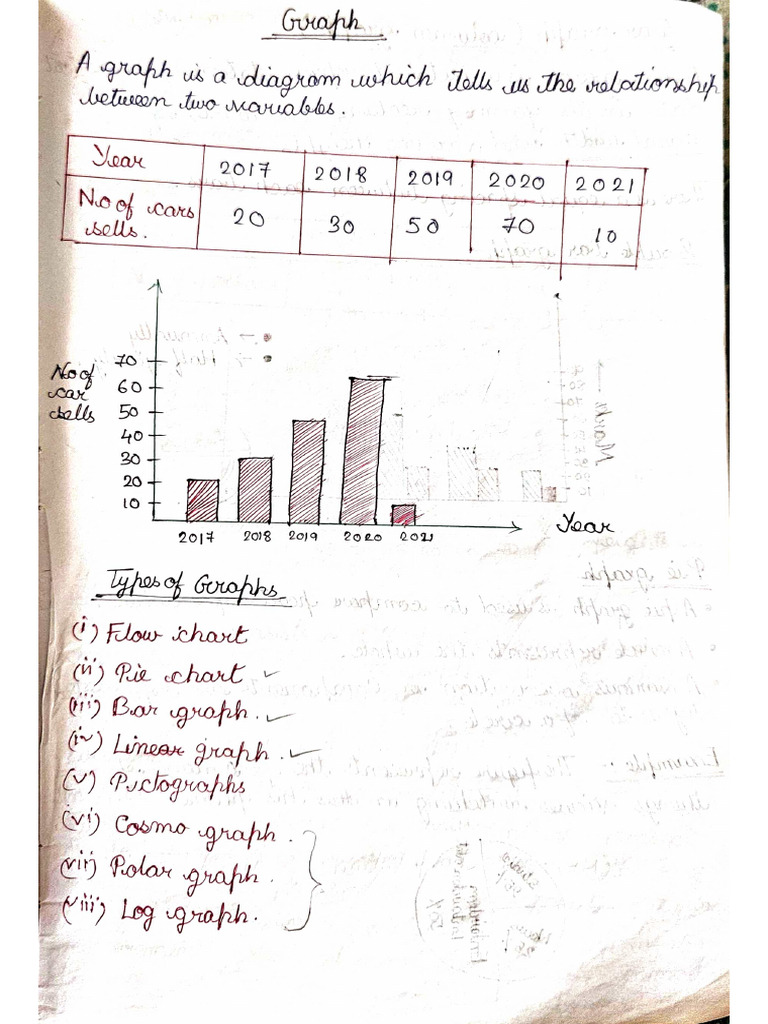 Graph
A graph is a diagram which tells us the relationship
between two variables.
Year 2017 2018 2019 2020 2021
No of cars sells. 20 30 50 70 10
No of
car
sells
70
60
50
40
30
20
10
2017 2018 2019 2020 2021
Year
Types of Graphs
(i) Flow chart
(ii) Pie chart ✓
(iii) Bar graph. ✓
(iv) Linear graph. ✓
(v) Pictographs
(vi) Cosmo graph.
(vii) Polar graph.
(viii) Log graph.